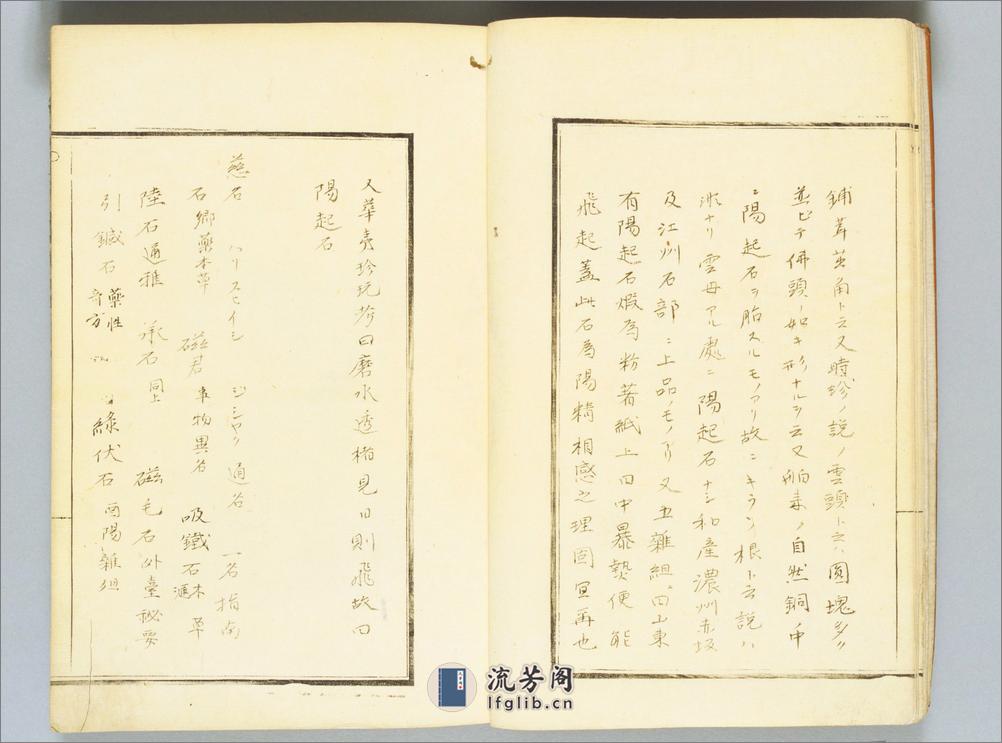 鋪茸茁角ト云又時珍ノ説ノ雲頭ト云ハ圓塊多ク
並ビテ佛頭ノ如キ形ナルヲ云又舶来ノ自然銅中
ニ陽起石ヲ胎スルモノアリ故ニキラノ根ト云説ハ
非ナリ雲母アル處ニ陽起石ナシ和産濃州赤坂
及江州石部ニ上品ノモノアリ又五雜組ニ曰山東
有陽起石煆為粉著紙上日中暴熱便能
飛起蓋此石為陽精相感之理固宜再也
又華夷珍玩考曰磨水透楮見日則飛故曰
陽起石
慈石 ハリスヒイシ ジシヤク 通名 一名指南
石郷藥本草 磁君事物異名 吸鐵石本草滙
陸石通雅 承石同上 磁毛石外臺秘要
引鍼石藥性奇方 緑伏石酉陽雜俎
流芳阁
lfglib.cn